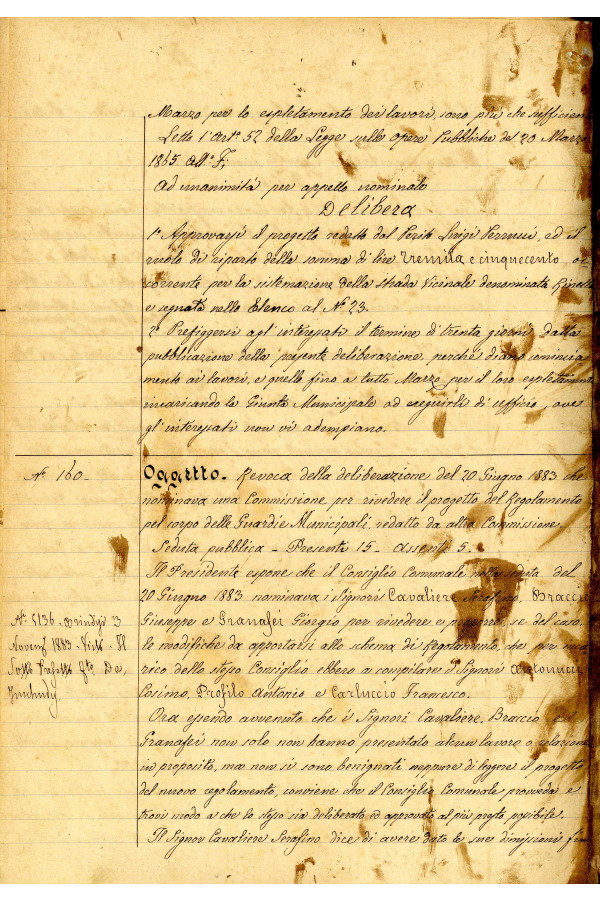 Marzo per lo espletamento dei lavori, sono più che sufficien
Letto l'Art.º 52 della Legge sulle Opere Pubbliche del 20 Marzo
1865 All.º F;
Ad unanimità per appello nominale
Delibera
1º Approvarsi il progetto redatto dal Perito Luigi Perrucci, ed il
ruolo di riparto della somma di lire Tremila e cinquecento oc
corrente per la sistemazione della strada Vicinale denominata
e segnata nello Elenco al Nº 23.
2º Prefiggersi agl'interessati il termine di trenta giorni dalla
pubblicazione della presente deliberazione, perché diano comincia
mento ai lavori, e quello fino a tutto Marzo per il loro espletamento
incaricando la Giunta Municipale ad eseguirli di ufficio, ove
gl'interessati non vi adempiano.
Nº 160 -
Oggetto - Revoca della deliberazione del 20 Giugno 1883 che
nominava una Commissione per rivedere il progetto del Regolamento
pel corpo delle Guardie Municipali, redatto da altra Commissione.
Seduta pubblica - Presenti 15 - Assenti 5.
Il Presidente espone che il Consiglio Comunale nella seduta del
20 Giugno 1883 nominava i Signori Cavaliere Serafino, Braccio
Giuseppe e Granafei Giorgio per rivedere e proporre, se del caso,
le modifiche da apportarsi allo schema di Regolamento, che per inca
rico dello stesso Consiglio ebbero a compilare i Signori Antonucci
Cosimo, Profilo Antonio e Carluccio Francesco.
Nº 5136 - Brindisi 3
Novemb 1883 - Visto - Il
Sotto Prefetto Fto De
Ora essendo avvenuto che i Signori Cavaliere, Braccio ed
Granafei non solo non hanno presentato alcun lavoro o relazione
in proposito, ma non si sono benignati neppure di leggere il progetto
del nuovo regolamento, conviene che il Consiglio Comunale provveda e
trovi modo a che lo stesso sia deliberato ed approvato al più presto possibile.
Il Signor Cavaliere Serafino dice di avere dato le sue dimissioni fin